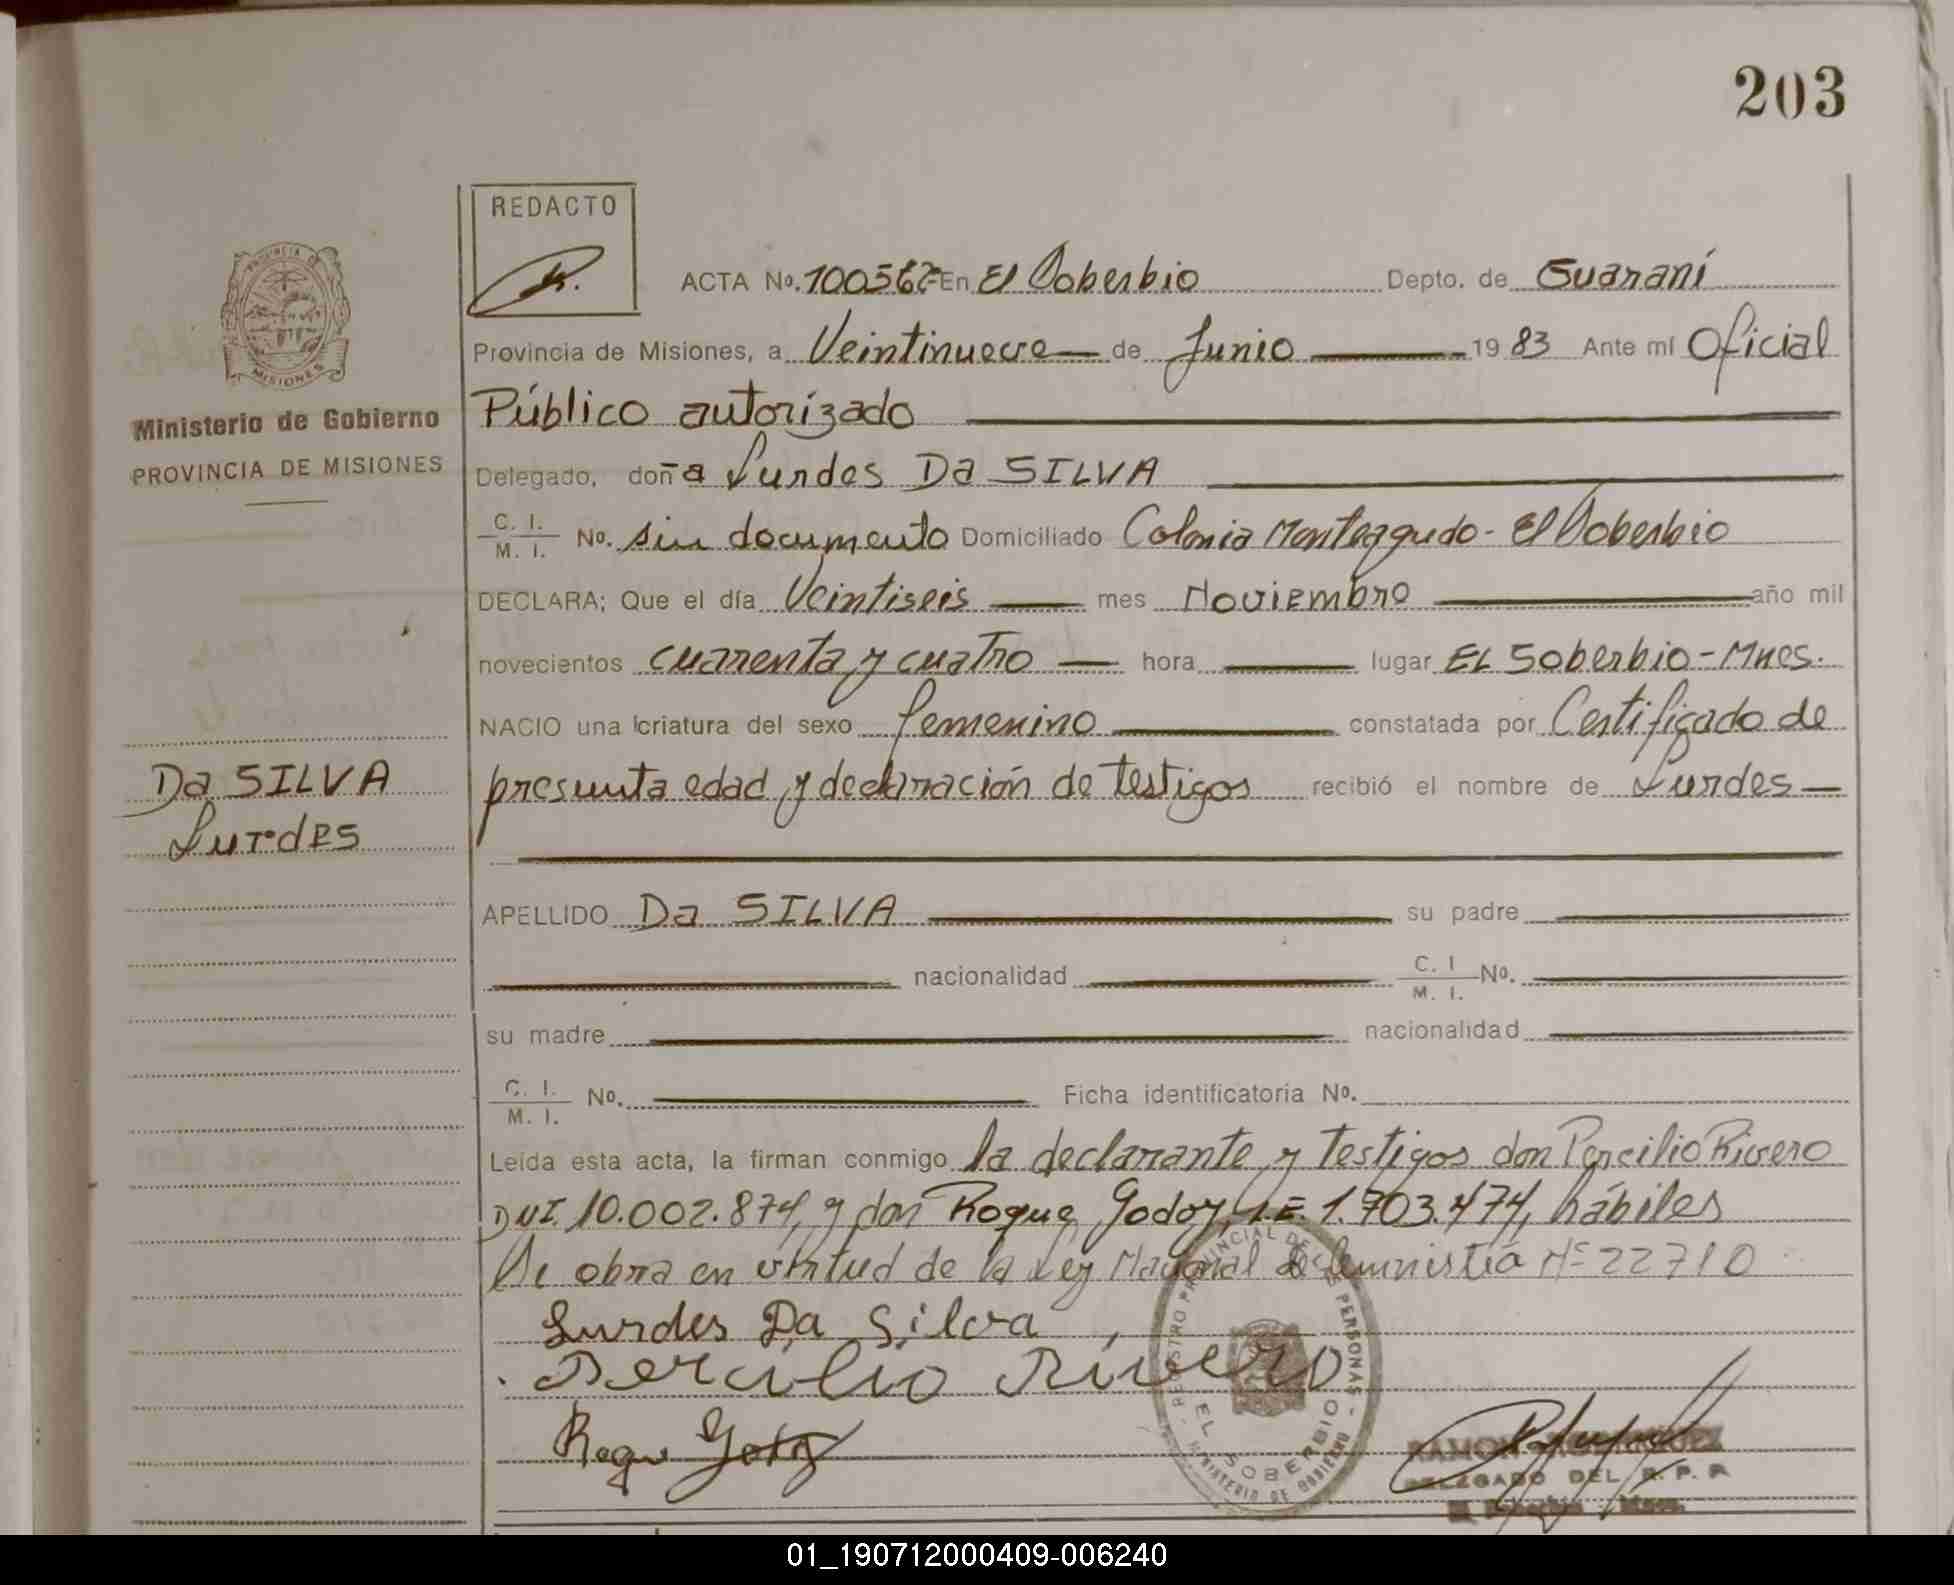 203
REDACTO
ACTA No. 100562 En El Soberbio Depto. de Guaraní
Provincia de Misiones, a Veintinueve de Junio 19 83 Ante mí Oficial
Público autorizado
Delegado, doña Lurdes Da SILVA
C. I. M. I. No. sin documento Domiciliado Colonia Monteagudo - El Soberbio
DECLARA; Que el día Veintiseis mes Noviembre año mil
novecientos cuarenta y cuatro hora lugar EL Soberbio - Mnes.
NACIO una criatura del sexo femenino constatada por Certificado de
presunta edad y declaración de testigos recibió el nombre de Lurdes
APELLIDO Da SILVA su padre
nacionalidad C. I M. I. No.
su madre nacionalidad
C. I. M. I. No. Ficha identificatoria No.
Leída esta acta, la firman conmigo la declarante y testigos don Percilio Rivero
DNI. 10.002.874, y don Roque Godoy, L.E. 1.703.474, hábiles
Se obra en virtud de la Ley Nacional de Amnistía Nº 22710
Lurdes Da Silva
Percilio Rivero
Roque Godoy
PROVINCIA DE
MISIONES
Ministerio de Gobierno
PROVINCIA DE MISIONES
Da SILVA
Lurdes
REGISTRO PROVINCIAL DE LAS PERSONAS
EL SOBERBIO
MINISTERIO DE GOBIERNO
RAMON
DELEGADO DEL R. P. P.
El Soberbio - Mnes.
01_190712000409-006240